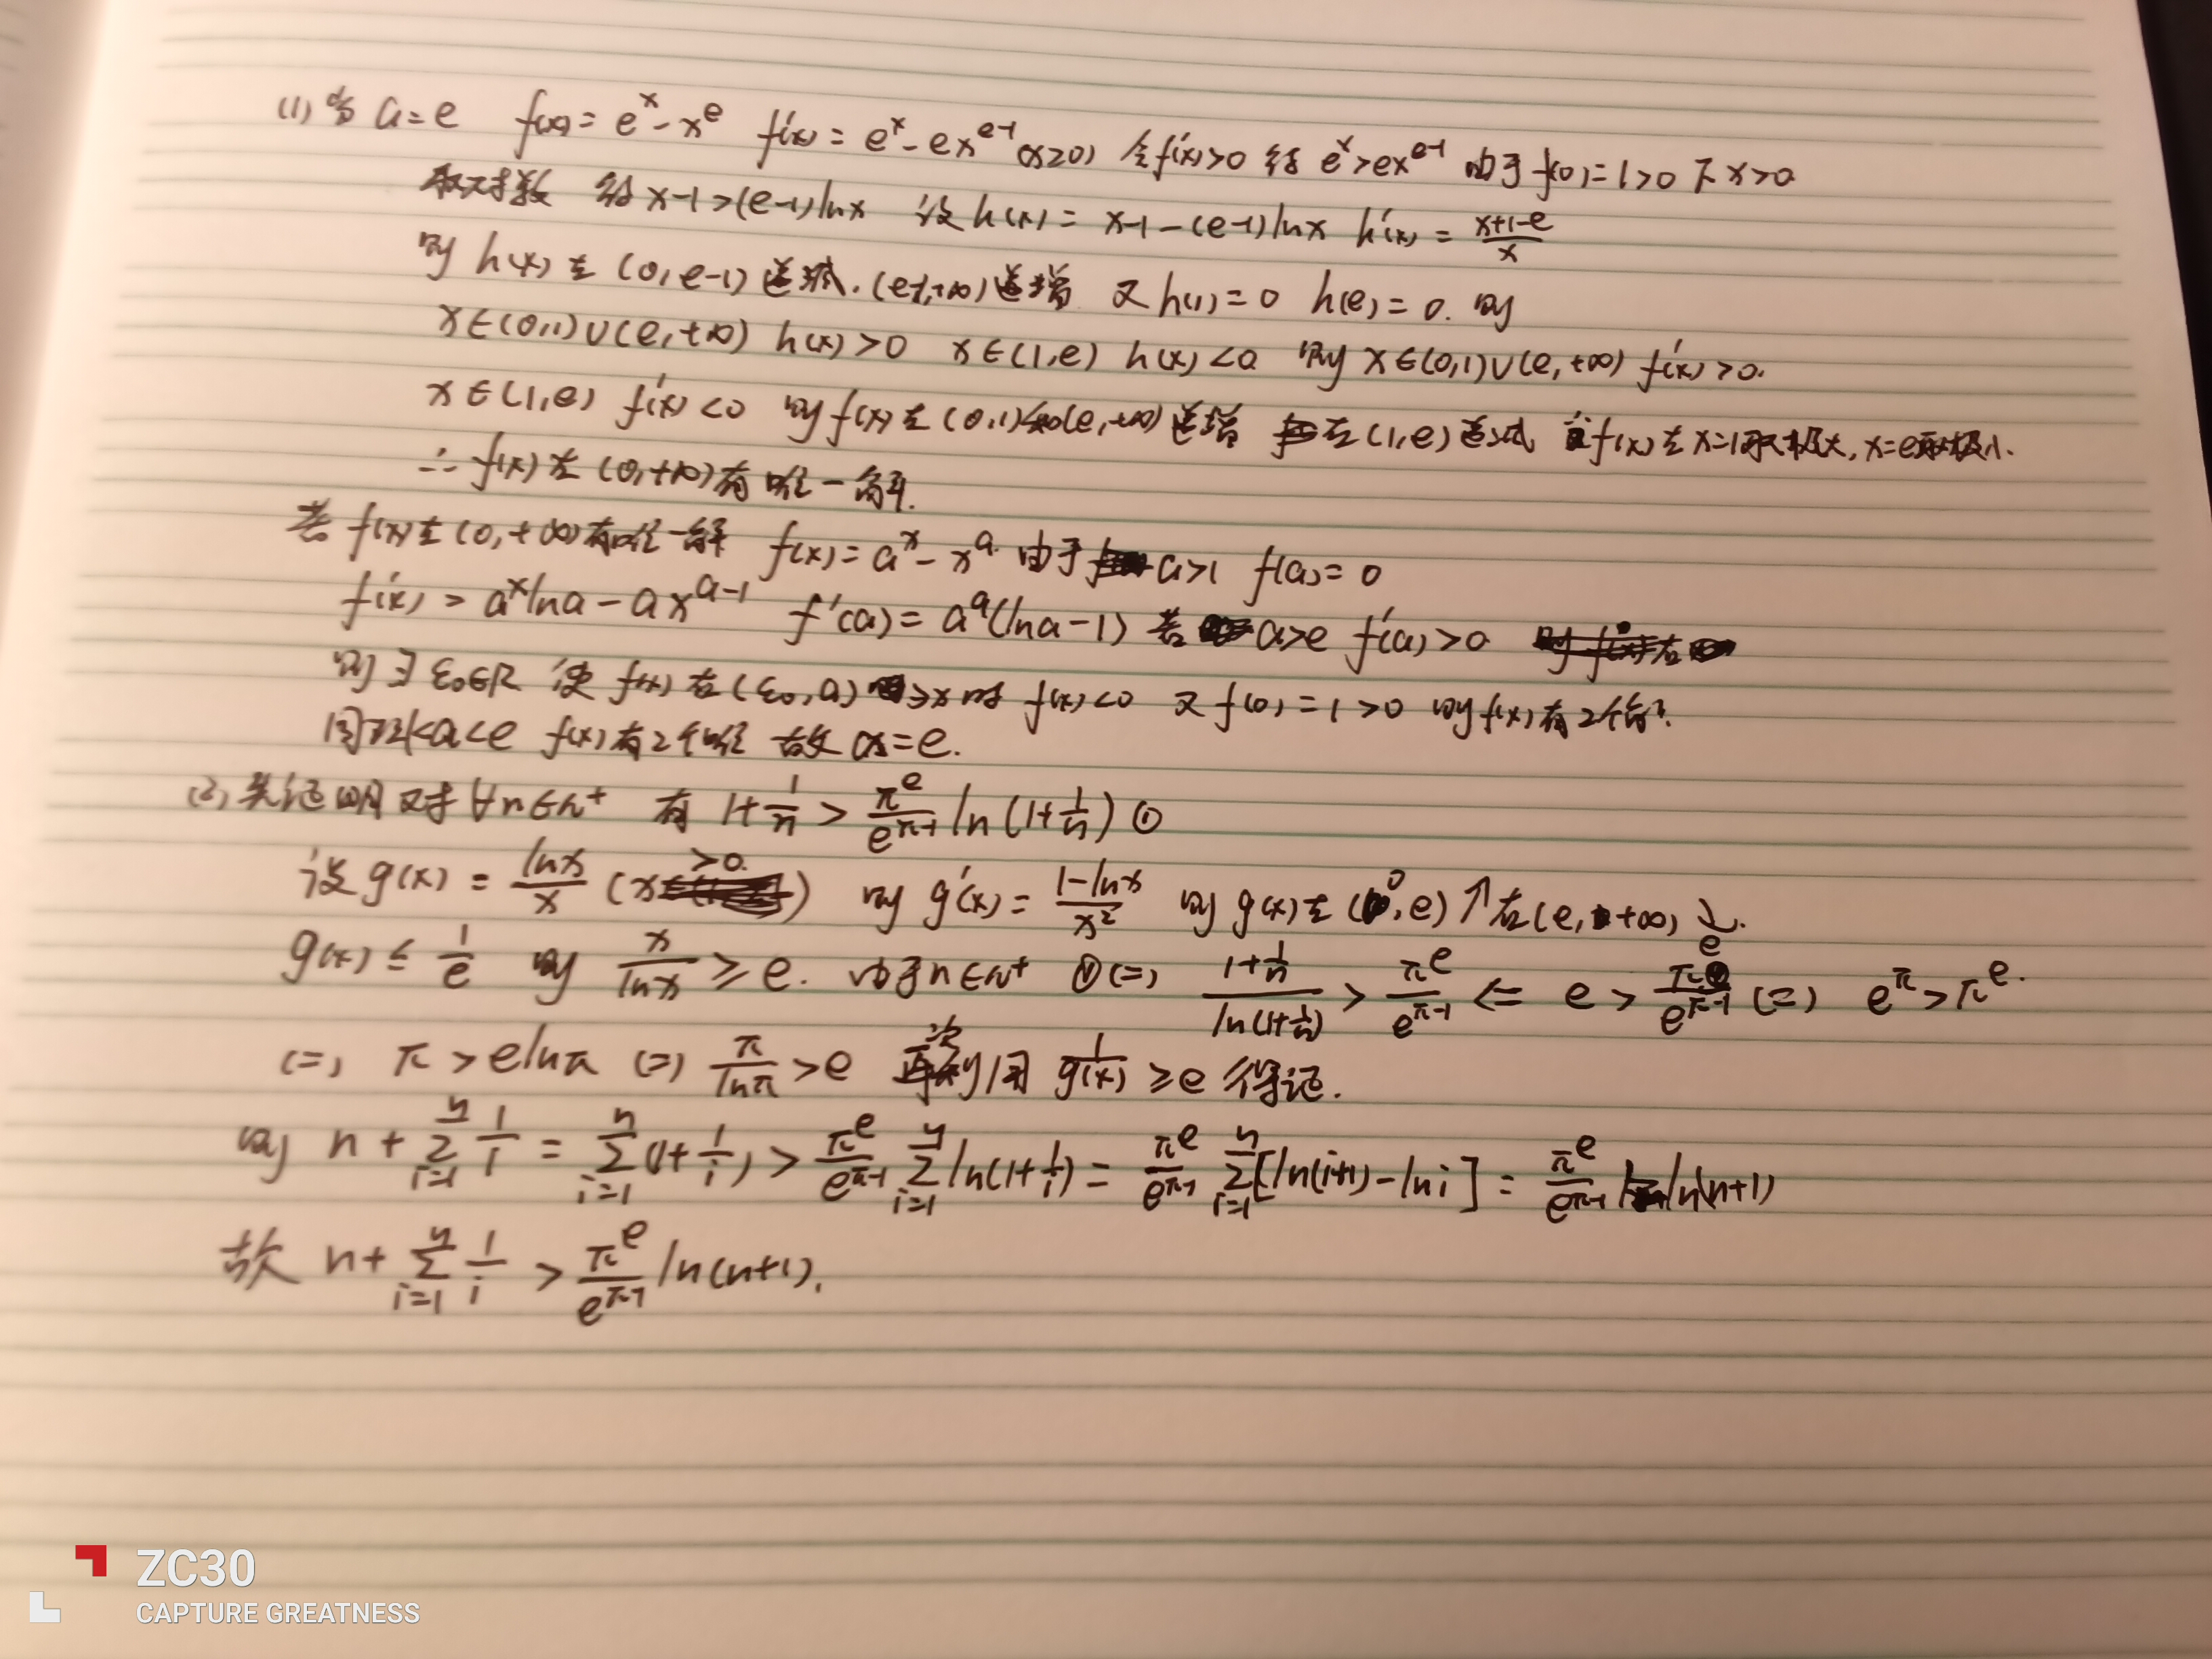 (1) 当 a=e f(x)=e^x-x^e f'(x)=e^x-ex^{e-1}(x≥0) 令f'(x)>0 给 e^x>ex^{e-1} 由于 f(0)=1>0 下 x>0
取对数 给 x-1>(e-1)lnx 设 h(x)=x-1-(e-1)lnx h'(x)=\frac{x+1-e}{x}
则 h(x) 在 (0,e-1) 递减.(e-1,+∞) 递增 又 h(1)=0 h(e)=0. 则
x∈(0,1)∪(e,+∞) h(x)>0 x∈(1,e) h(x)<0 则 x∈(0,1)∪(e,+∞) f'(x)>0.
x∈(1,e) f'(x)<0 则 f(x) 在 (0,1)和(e,+∞) 递增 在 (1,e) 递减 f(x) 在 x=1取极大, x=e取极小.
∴ f(x) 在 (0,+∞) 有唯一解.
若 f(x) 在 (0,+∞) 有唯一解 f(x)=a^x-x^a 由于 a>1 f(a)=0
f'(x)=a^xlna-ax^{a-1} f'(a)=a^a(lna-1) 若 a>e f'(a)>0
则 ∃ ε₀∈R 使 f(x) 在 (ε₀,a) ∋x 时 f(x)<0 又 f(0)=1>0 则 f(x) 有2个解.
同理1<a<e f(x) 有2个 故 a=e.
(2) 先证明 对 ∀n∈N^+ 有 1+\frac{1}{n}>\frac{π^e}{e^{π-1}}ln(1+\frac{1}{n}) ①
设 g(x)=\frac{lnx}{x} (x>0) 则 g'(x)=\frac{1-lnx}{x^2} 则 g(x) 在 (0,e)↑在(e,+∞)↓.
g(x)≤\frac{1}{e} 则 \frac{x}{lnx}≥e. 由于 n∈N^+ ①(=) \frac{1+\frac{1}{n}}{ln(1+\frac{1}{n})}>\frac{π^e}{e^{π-1}} <= e>\frac{π^e}{e^{π-1}} (=) e^π>π^e.
(=) π>elnπ (=) \frac{π}{lnπ}>e 再次利用 \frac{1}{g(x)}≥e 得证.
则 n+\sum_{i=1}^{n}\frac{1}{i}=\sum_{i=1}^{n}(1+\frac{1}{i})>\frac{π^e}{e^{π-1}}\sum_{i=1}^{n}ln(1+\frac{1}{i})=\frac{π^e}{e^{π-1}}\sum_{i=1}^{n}[ln(i+1)-lni]=\frac{π^e}{e^{π-1}}ln(n+1)
故 n+\sum_{i=1}^{n}\frac{1}{i}>\frac{π^e}{e^{π-1}}ln(n+1).
ZC30
CAPTURE GREATNESS